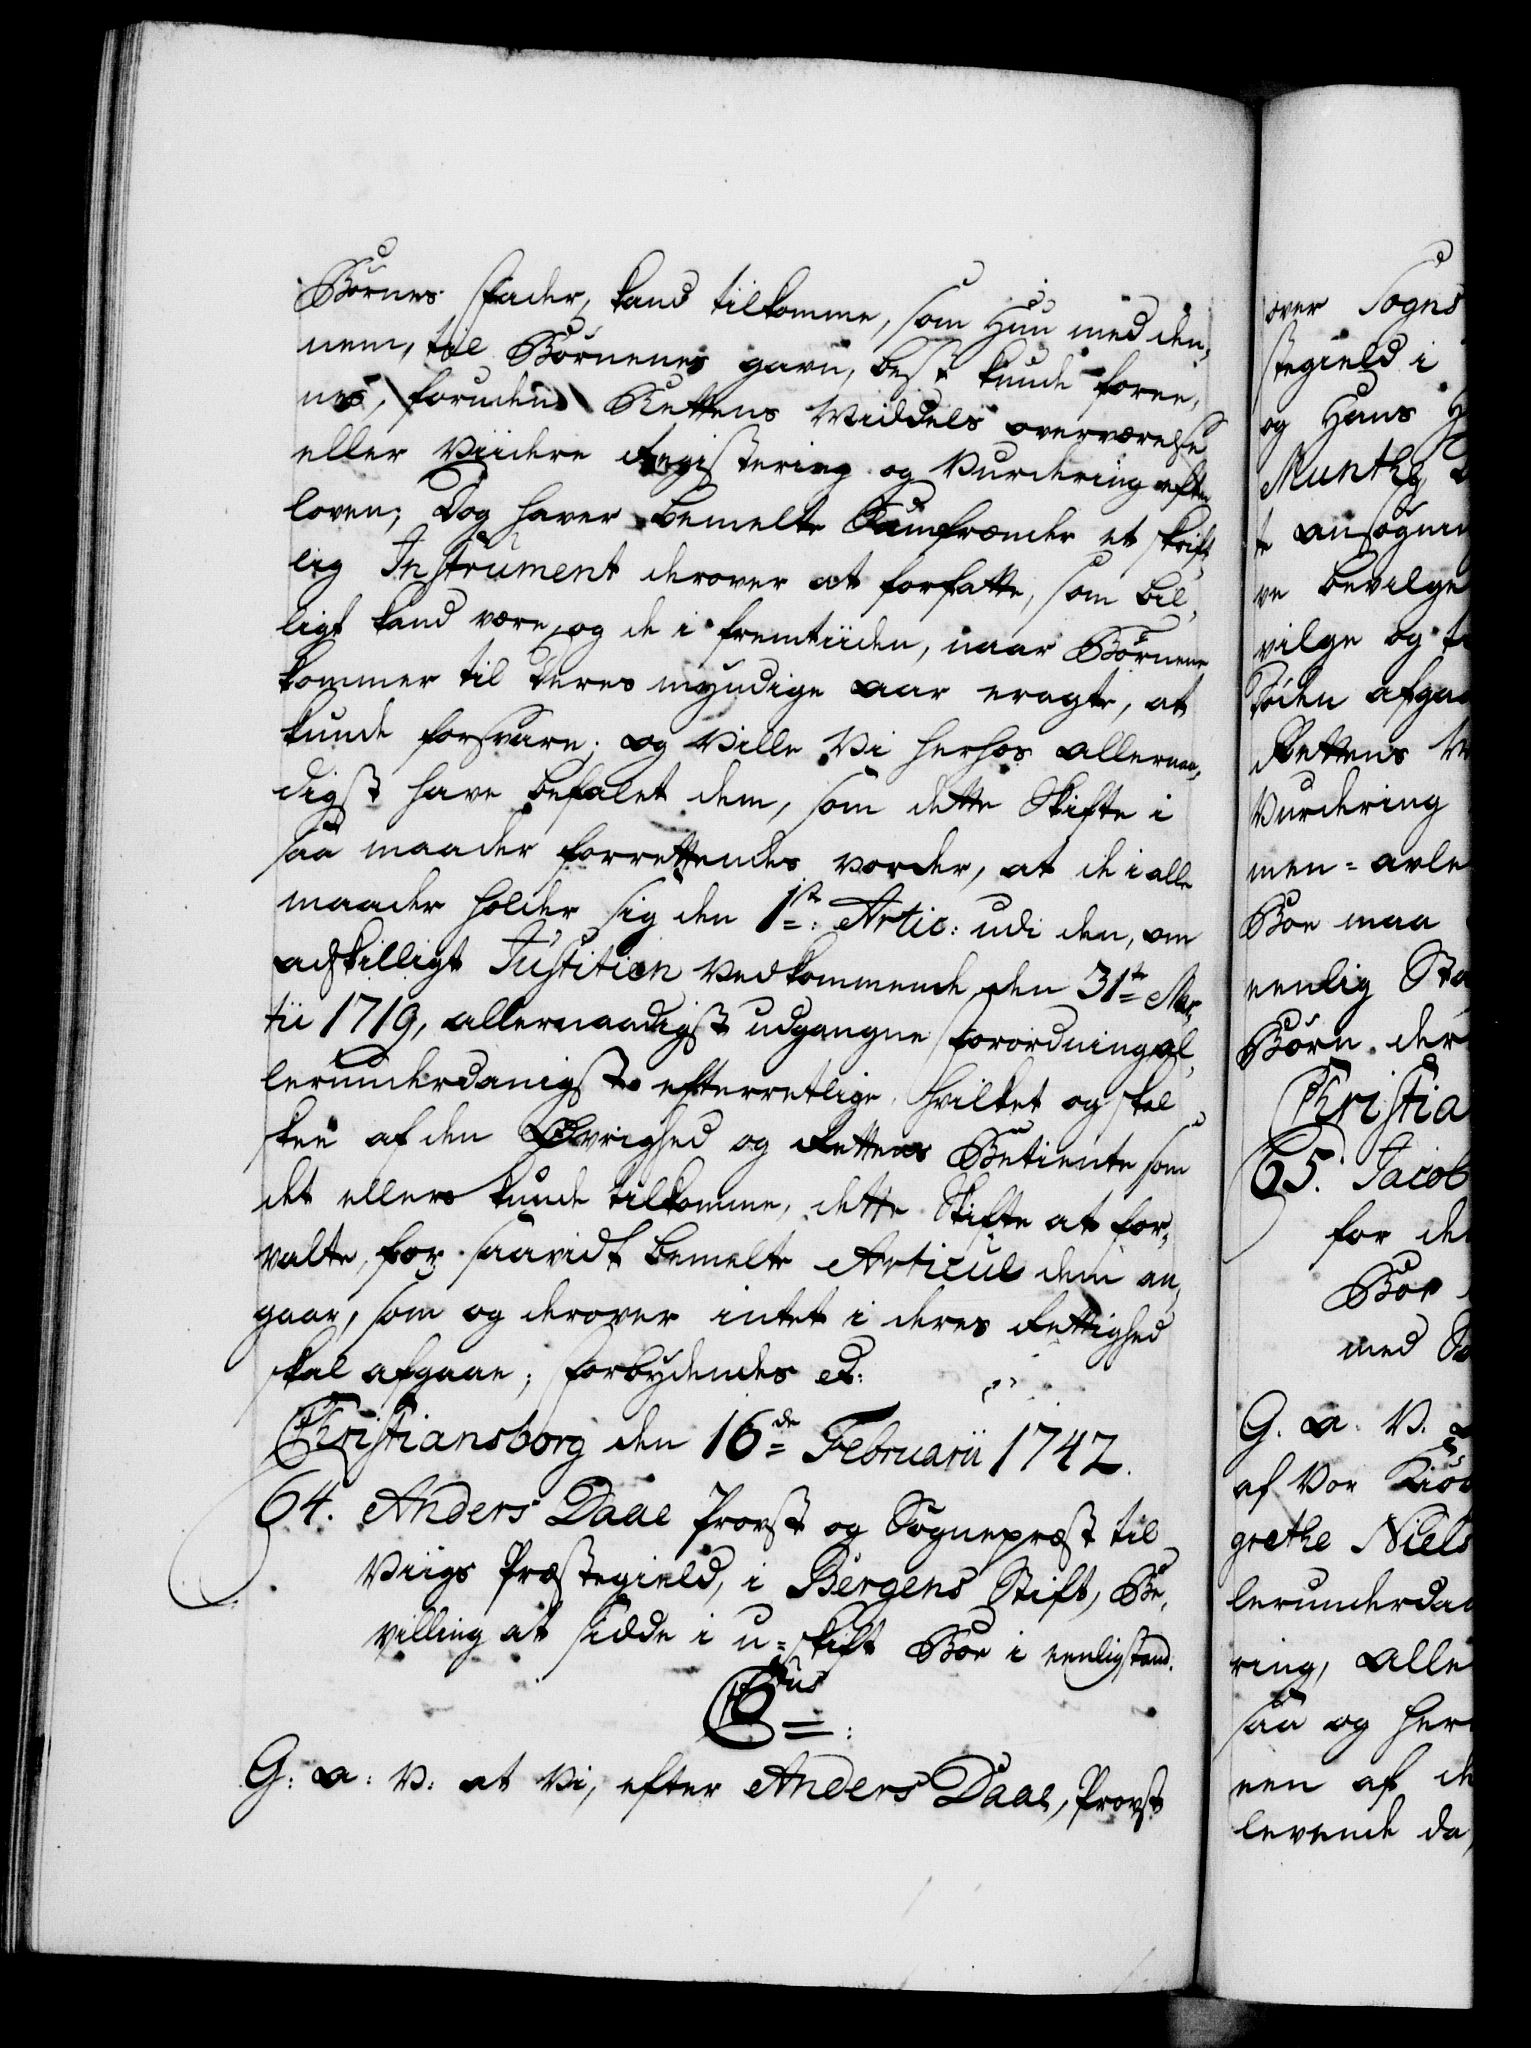 Børnes Fader, kand tilkomme, som Hun med den,
nem, til Børnenes gavn, best kunde foree,
nes, foruden Rettens Middels overværelse
eller Viidere Registering og Vurdering efter
loven; Dog haver bemelte Samfrænder et skrift,
lig Instrument derover at forfatte, som bil,
ligt kand være, og de i fremtiiden, naar Børnene
kommer til deres myndige aar eragte, at
kunde forsvare; og Ville Vi herhos allernaa,
digst have befalet dem, som dette Skifte i
saa maader forrettendes vorder, at de i alle
maader holder sig den 1ste: Artic: udi den, om
adskilligt Justitien Vedkommende den 31te Mar,
tii 1719, allernaadigst udgangne Forordning al,
lerunderdanigst efterrettlige, hvilket og skal
skee af den Øvrighed og Rettens Betiente som
det ellers kunde tilkomme, dette Skifte at for,
valte, for saavidt bemelte Articul dem an,
gaar, som og derover intet i deres Rettighed
skal afgaae; Forbydendes &:
Christiansborg den 16de Februarii 1742.
64. Anders Daae Provst og Sognepræst til
Viigs Præstegield, i Bergens Stift, Be,
villing at sidde i u=skift Boe i eenlig stand.
C6tus:
G: a: V: at Vi, efter Anders Daae, Provst
over Sogns
stegield i
og Hans H
Munthe, D
t ansøgnin
ve bevilge
vilge og t
Søden afgaa
Rettens M
Vurdering
men=avle
Boe maa
eenlig Sta
Børn der
Christia
65. Jacob
for de
Boe
med Sa
G. a. V.
af Vor Kiøb
grethe Niels
lerunderda
ring, alle
saa og her
een af de
levende da